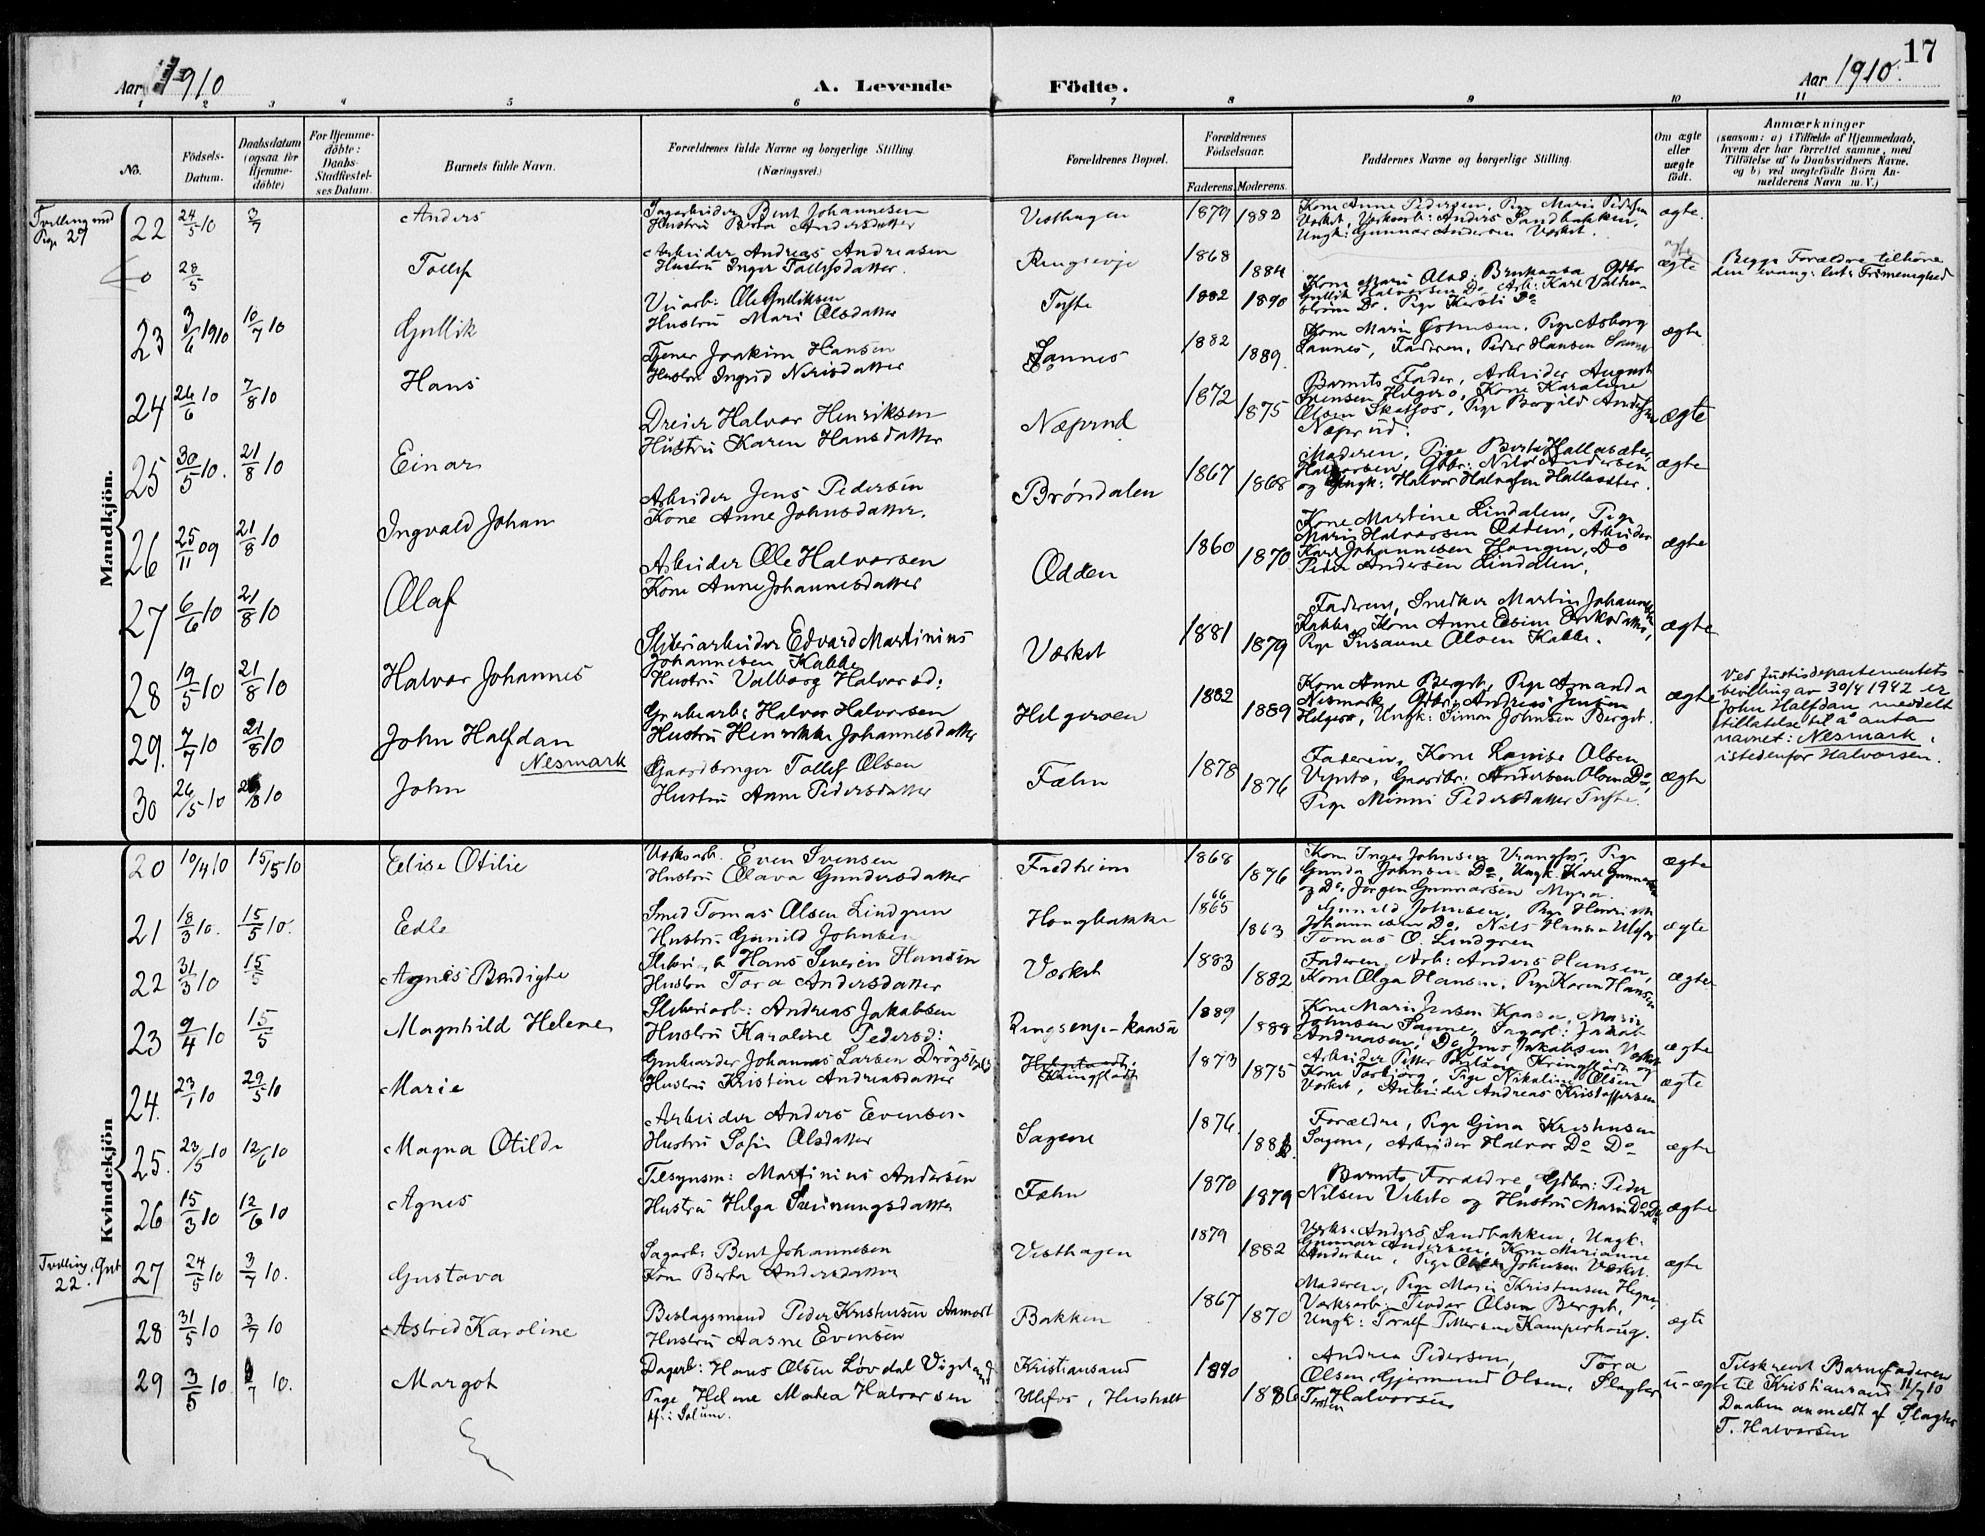 17
Aar 1910
A. Levende
Födte.
Aar 1910.
1 2 3 4 5 6 7 8 9 10 11
No.
Födsels-Datum.
Daabsdatum (ogsaa för Hjemme-döbte)
For Hjemme-döbte: Daabs-Stadfæstel-ses Datum.
Barnets fulde Navn.
Forældrenes fulde Navne og borgerlige Stilling (Næringsvei.)
Forældrenes Bopæl.
Forældrenes Födselsaar.
Faderens. Moderens.
Faddernes Navne og borgerlige Stilling.
Om ægte eller uægte födt.
Anmærkninger
(saasom: a) i Tilfælde af Hjemmedaab, hvem der har forrettet samme, med Tilföielse af to Daabsvidners Navne, og b) ved uægtefödte Börn An-melderens Navn m. V.)
Mandkjön.
Tvilling med Pige 27
22 24/5 10 3/7 Anders
Sagarbeider Bent Johannesen
Hustru Berta Andersdatter
Vesthagen 1879 1883
Kone Anne Pedersen, Pige Marie Pedersen
Værket, Værksarb: Anders Sandbakken,
Ungk: Gunnar Andersen Værket.
ægte.
0 28/5 Tollef
Arbeider Andreas Andreasen
Hustru Inger Tollefsdatter.
Ringsevje 1868 1884
ægte
Begge Forældre tilhöre
den evang: luth: Frimenighed
23 3/6 1910 10/7 10 Gullik
Hustru Mari Olsdatter
Tufte 1882 1890
Kone Mari Olsd: Brukaasa Gdbr
Gullik Halvorsen Do Arb: Karl
Do, Pige Kersti Do
ægte
24 26/6 10 7/8 10 Hans
Tjener Joakim Hansen
Hustru Ingrid Nirisdatter
Sannes 1882 1889.
Kone Marie Pige Asborg
Sannes, Faderen, Peder Hansen
25 30/5 10. 21/8 10 Einar
Dreier Halvor Henriksen
Hustru Karen Hansdatter
Næprud 1872 1875
Barnets Fader, Arbeider August
Svensen Helgero, Kone Karoline
Olsen Skotfos, Pige Borgild Andersen
Næprud.
ægte
26 25/11 09 21/8 10 Ingvald Johan
Arbeider Jens Pedersen
Kone Anne Johnsdatter.
Bröndalen 1867 1868
Moderen, Pige Berte Hallasæter,
Halvorsen, Gdbr: Nils Andersen
og Ungk: Halvor Halvorsen Hallasæter.
ægte
27 6/6 10 21/8 10 Olaf
Arbeider Ole Halvorsen
Kone Anne Johannesdatter
Odden 1860 1870
Kone Martine Lindalen, Pige
Marie Halvorsen Odden, Arbeider
Karl Johannesen Haugen, Do
Peder Andersen Lindalen.
ægte
28 19/5 10 21/8 10 Halvor Johannes
Sliberiarbeider Edvard Martinius
Johannesen Kabbe
Hustru Valborg Halvorsd:
Værket 1881 1879
Faderen, Snedker Martin Johannesen
Kabbe, Kone Anne Eriksdatter,
Pige Susanne Olsen Kabbe.
ægte
29. 7/7 10 21/8 10 John Halfdan
Nesmark
Grubearb: Halvor Halvorsen
Hustru Henrikke Johannesdatter
Helgeroen 1882 1889
Kone Anne Berget, Pige Amanda
Nesmark, Gdbr: Andreas Jensen
Helgero, Ungk: Simon Johnsen Berget.
ægte
Ved Justisdepartementets
bevilling av 30/4 1942 er
John Halfdan meddelt
tillatelse til å anta
navnet: Nesmark,
istedenfor Halvorsen.
30 26/5 10 John
Gaardbruger Tollef Olsen
Hustru Anne Pedersdatter
Fæhn 1878 1876
Faderen, Kone Lovise Olsen
Gaardbr: Andersen Olsen Do,
Pige Minni Pedersdatter Tufte.
ægte
Kvindekjön
20 10/4 10 15/5 10 Elise Otilie
Værksarb. Even Svensen
Hustru Olava Gundersdatter
Fredheim 1868 1876
Kone Inger Johnsen Vrangfos, Pige
Gunda Johnsen Do, Ungk. Karl Gunnarsen
og Do. Jörgen Gunnarsen Myra
ægte
21 18/3 10. 15/5 10. Edle
Smed Tomas Olsen Lindgren
Hustru Gunild Johnsen
Hougbakke 1865 66 1863
Gunild Johnsen, Pige Henriette
Johannesen Do, Nils Hansen Ulefos
Tomas O. Lindgren
ægte
22 31/3 10 15/5 Agnes Bendigte
Hans Severin Hansen
Hustru Tora Andersdatter
Værket 1883 1882
Faderen, Arb: Anders Hansen,
Kone Olga Hansen, Pige Karen Hansen
ægte
23 9/4 10 15/5 Magnhild Helene
Sliberiarb: Andreas Jakobsen
Hustru Karoline Pedersd:
Ringsevje-kaasa 1889 1888
Kone Marie Jensen Kaasa, Marie
Johnsen Sanne, Sagarb: Jakob
Andreasen, Do Jens Jakobsen Værket
ægte
24. 23/1 10 29/5 10 Marie
Grubearbeider Johannes Larsen
Hustru Kristine Andreasdatter
Kringflødt 1873 1875
Arbeider Petter Kringflødt og
Kone Torbjörg, Pige Nikoline Olsen
Værket, Arbeider Andreas Kristoffersen
ægte
25. 23/5 10 12/6 10 Magna Otilde
Arbeider Anders Evensen
Hustru Sofie Olsdatter
Sagene 1876
Forældre, Pige Gina Kristensen
Sagene, Arbeider Halvor Do Do
ægte
26 15/3 10 12/6 10 Agnes
Tilsynsm: Martinius Andersen
Hustru Helga
Fæhn 1870 1879
Barnets Forældre, Gdbr: Peder
Nilsen Vibeto og Hustru Marie Do Do
ægte
Tvilling. Gut 22.
27 24/5 10 3/7 10. Gustava
Sagarb: Bent Johannesen
Kone Berta Andersdatter
Vesthagen 1879 1882
Værks: Anders Sandbakken, Ungk:
Gunnar Andersen, Kone Marianne
Andersen, Pige Johnsen Værket.
ægte
28 31/5 10 3/7 10 Astrid Karoline
Beslagsmand Peder Kristensen
Hustru Aasne Evensen
Bakken 1867 1870
Moderen, Pige Marie Kristensen Hegna,
Værksarb. Teodor Olsen Berget,
Ungk: Toralf Kamperhaug.
ægte
29 3/5 10 Margot
Dagarb: Hans Olsen Lövdal Vigeland
Pige Helene Mathea Halvorsen
Kristiansand
Ulefos, Husholdt
1890 1886
Andrea Pedersen, Tora
Olsen, Gjermund Olsen, Slagter
Torsten Halvorsen
u-ægte
Tilskrevet Barnefaderen
til Kristiansand 11/7 10
Daaben anmeldt af Slagter
T. Halvorsen